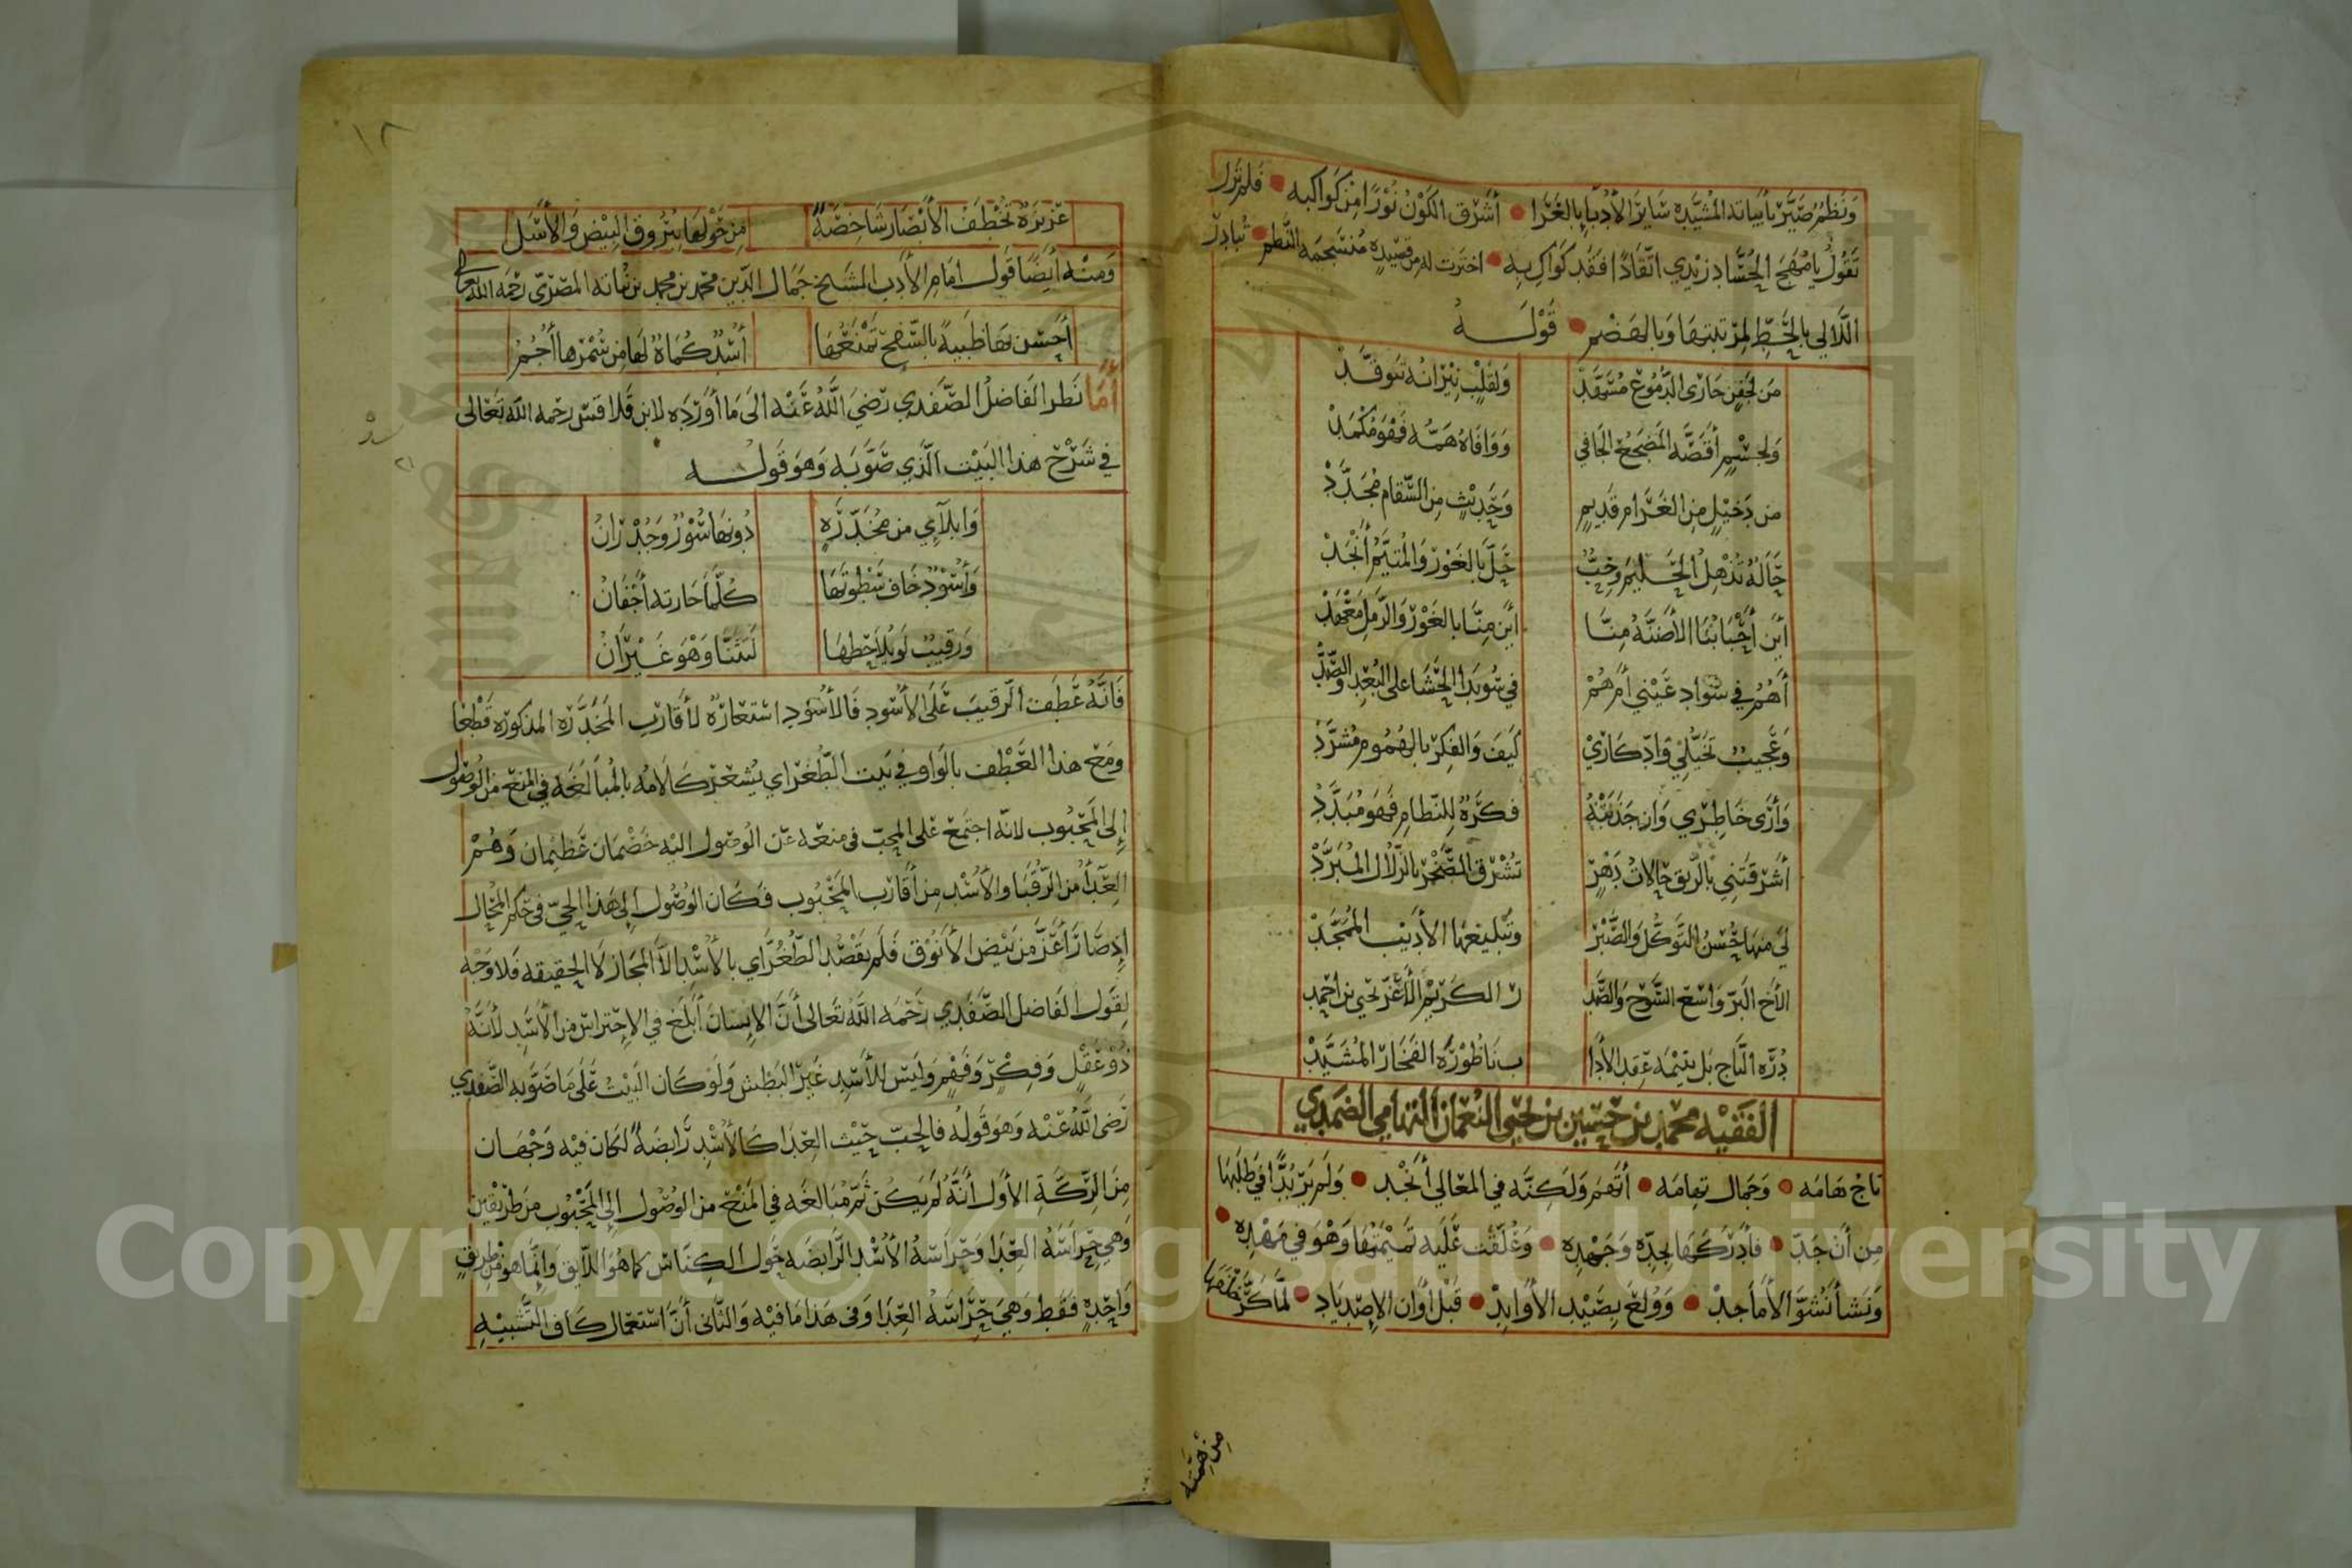 ونظم صير بأبياته المشيده سائر الأدبا بالغرا • أشرق الكون نورا من كواكبه • فلم تزل
تقول يا مهج الحساد زيدي اتقادا فقد كواك به • اخترت له من قصيدة منسجمة النظم • تبادر
اللالي بالحط لمرتبتها وبالهضم • قوله
من لجفن جارى الدموع مسهد ولقلب نيرانه تتوقد
ولجسم أقضه المضجع الجافي ووافاه همه فهو مكمد
من دخيل من الغرام قديم وحديث من السقام مجدد
حالة تذهل الحليم وحب حل بالغور والمتيم أنجد
أين أحبابنا الأضنة منا أين منا بالغور والرمل معهد
أهم في سواد عيني أم هم في سويدا الحشا على البعد والصد
وعجيب تخيلي وادكاري كيف والفكر بالهموم مشرد
وأرى خاطري وان جذبته فكرة للنظام فهو مبدد
أشرقتني بالريق حالات دهر تشرق الصخر بالزلال المبرد
لي منها حسن التوكل والصبر وتبليغها الأديب الممجد
الأخ البر واسع الشرح والصد ر الكريم الأغر يحيى بن احمد
درة التاج بل يتيمة عقد الأدا ب ناطورة الفخار المشيد
الفقيه محمد بن حسين بن يحيى النعمان التهامي الضمدي
تاج هامه • وجمال تهامه • أتهم ولكنه في المعالي أنجد • ولم ير بدا في طلبها
من أن جد • فأدركها بجده وجهده • وعلقت عليه تميمتها وهو في مهده •
ونشأ نشو الأماجد • وولع بصيد الأوابد • قبل أوان الإصدياد • لما كر
من همته
١٢
عزيزة تخطف الأبصار شاخصة من حولها ببروق البيض والأسل
ومنه أيضا قول امام الأدب الشيخ جمال الدين محمد بن محمد بن نباته المصري رحمه الله تعالى
أحسن بها ظبية بالسفح تمنعها أسد كماة لها من سمرها أجم
أما نظر الفاضل الصفدي رضي الله عنه الى ما أورده لابن قلاقس رحمه الله تعالى
في شرح هذا البيت الذي صوبه وهو قوله
وابلآي من مخدرة دونها سور وجدران
وأسود خاف سطوتها كلما حارته أجفان
ورقيب لو يلاحظها لنثنا وهو غيران
فانه عطف الرقيب على الأسود فالأسود استعارة لأقارب المخدرة المذكورة قطعا
ومع هذا العطف بالواو في بيت الطغراي يشعر كلامه بالمبالغه في المنع من الوصول
إلى المحبوب لانه اجتمع على المحب في منعه عن الوصول اليه خصمان عظيمان وهم
العدا من الرقبا والأسد من أقارب المحبوب فكان الوصول إلى هذا الحي في حكم المحال
إذ صار أعز من بيض الأنوق فلم يقصد الطغراي بالأسد الا المجاز لا الحقيقة فلا وجه
لقول الفاضل الصفدي رحمه الله تعالى أن الإنسان أبلغ في الإحتراس من الأسد لأنه
ذو عقل وفكر وفهم وليس للأسد غير البطش ولو كان البيت على ما صوبه الصفدي
رضي الله عنه وهو قوله فالحب حيث العدا كالأسد رابضة لكان فيه وجهان
من الركة الأول أنه لم يكن ثم مبالغه في المنع من الوصول إلى المحبوب من طريقين
وهي حراسة العدا وحراسة الأسد الرابضه حول الكناس كما هو اللايق وإنما هو من طريق
واحدة فقط وهي حراسة العدا وفي هذا ما فيه والثاني أن استعمال كاف التشبيه
Copyright © King Saud University